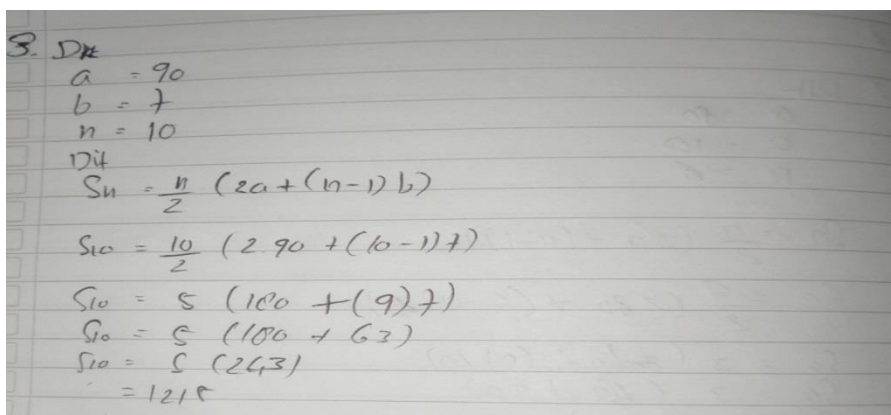 3. Dik
a = 90
b = 7
n = 10
Dit
Sn = n/2 (2a + (n-1) b)
S10 = 10/2 (2.90 + (10-1) 7)
S10 = 5 (180 + (9) 7)
S10 = 5 (180 + 63)
S10 = 5 (243)
= 1215